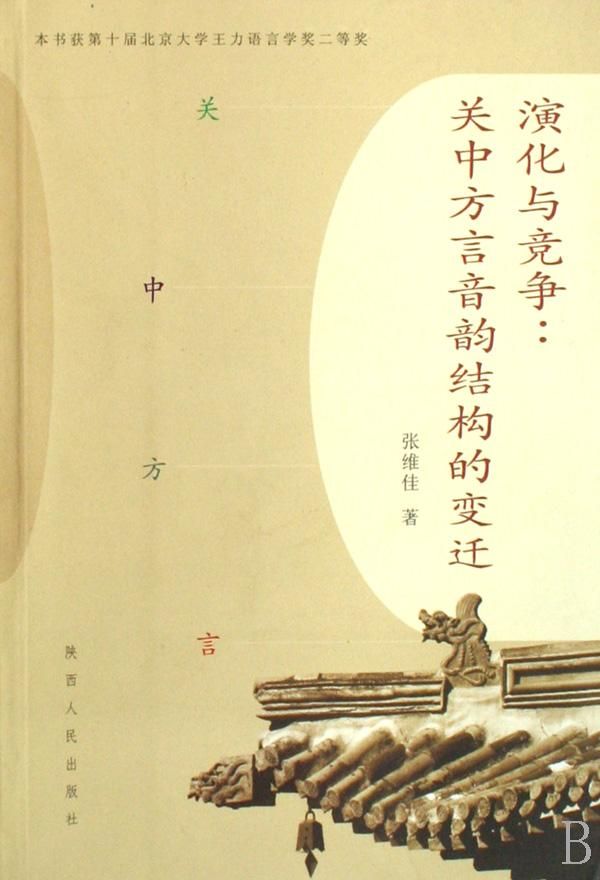 本书获第十届北京大学王力语言学奖二等奖
演化与竞争：
关中方言音韵结构的变迁
张维佳 著
关
中
方
言
陕西人民出版社
B